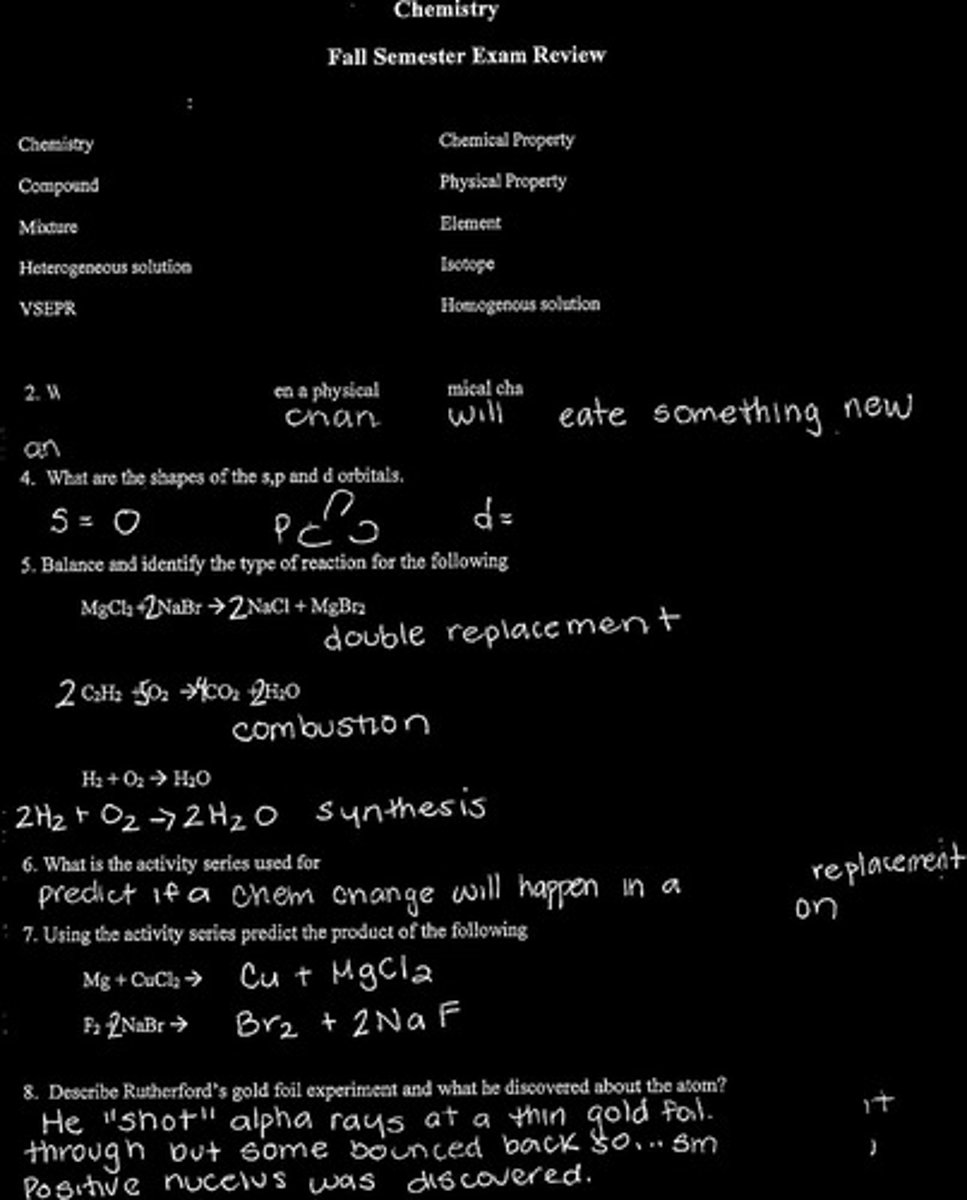 Chemistry
Fall Semester Exam Review
:
Chemistry Chemical Property
Compound Physical Property
Mixture Element
Heterogeneous solution Isotope
VSEPR Homogenous solution
2. en a physical mical cha
chan will eate something new
an
4. What are the shapes of the s,p and d orbitals.
S = O P d =
5. Balance and identify the type of reaction for the following
MgCl₂ + 2NaBr → 2NaCl + MgBr₂
double replacement
2 C₂H₂ + 5O₂ → 4CO₂ + 2H₂O
combustion
H₂ + O₂ → H₂O
2H₂ + O₂ → 2H₂O synthesis
6. What is the activity series used for
predict if a chem change will happen in a replacement
on
7. Using the activity series predict the product of the following
Mg + CuCl₂ → Cu + MgCl₂
F₂ 2NaBr → Br₂ + 2NaF
8. Describe Rutherford's gold foil experiment and what he discovered about the atom?
He "shot" alpha rays at a thin gold foil. it
through but some bounced back so... sm
Positive nucelus was discovered.